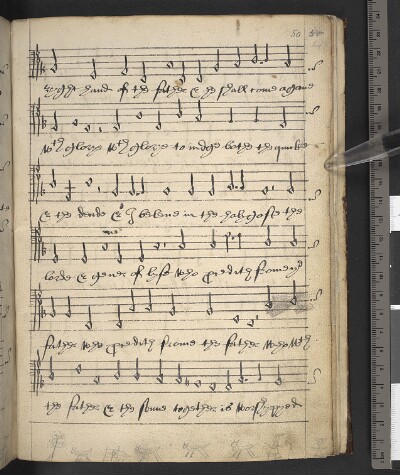 50
right hand of the father & he shall come agane
wth glorye wth glorye to iudge bothe the quicke
& the deade & I beleve in the holy goste the
lorde & gever of lyfe who proedith frome yᵉ
father who proedith frome the father who wth
the father & the sonne together is worshipped